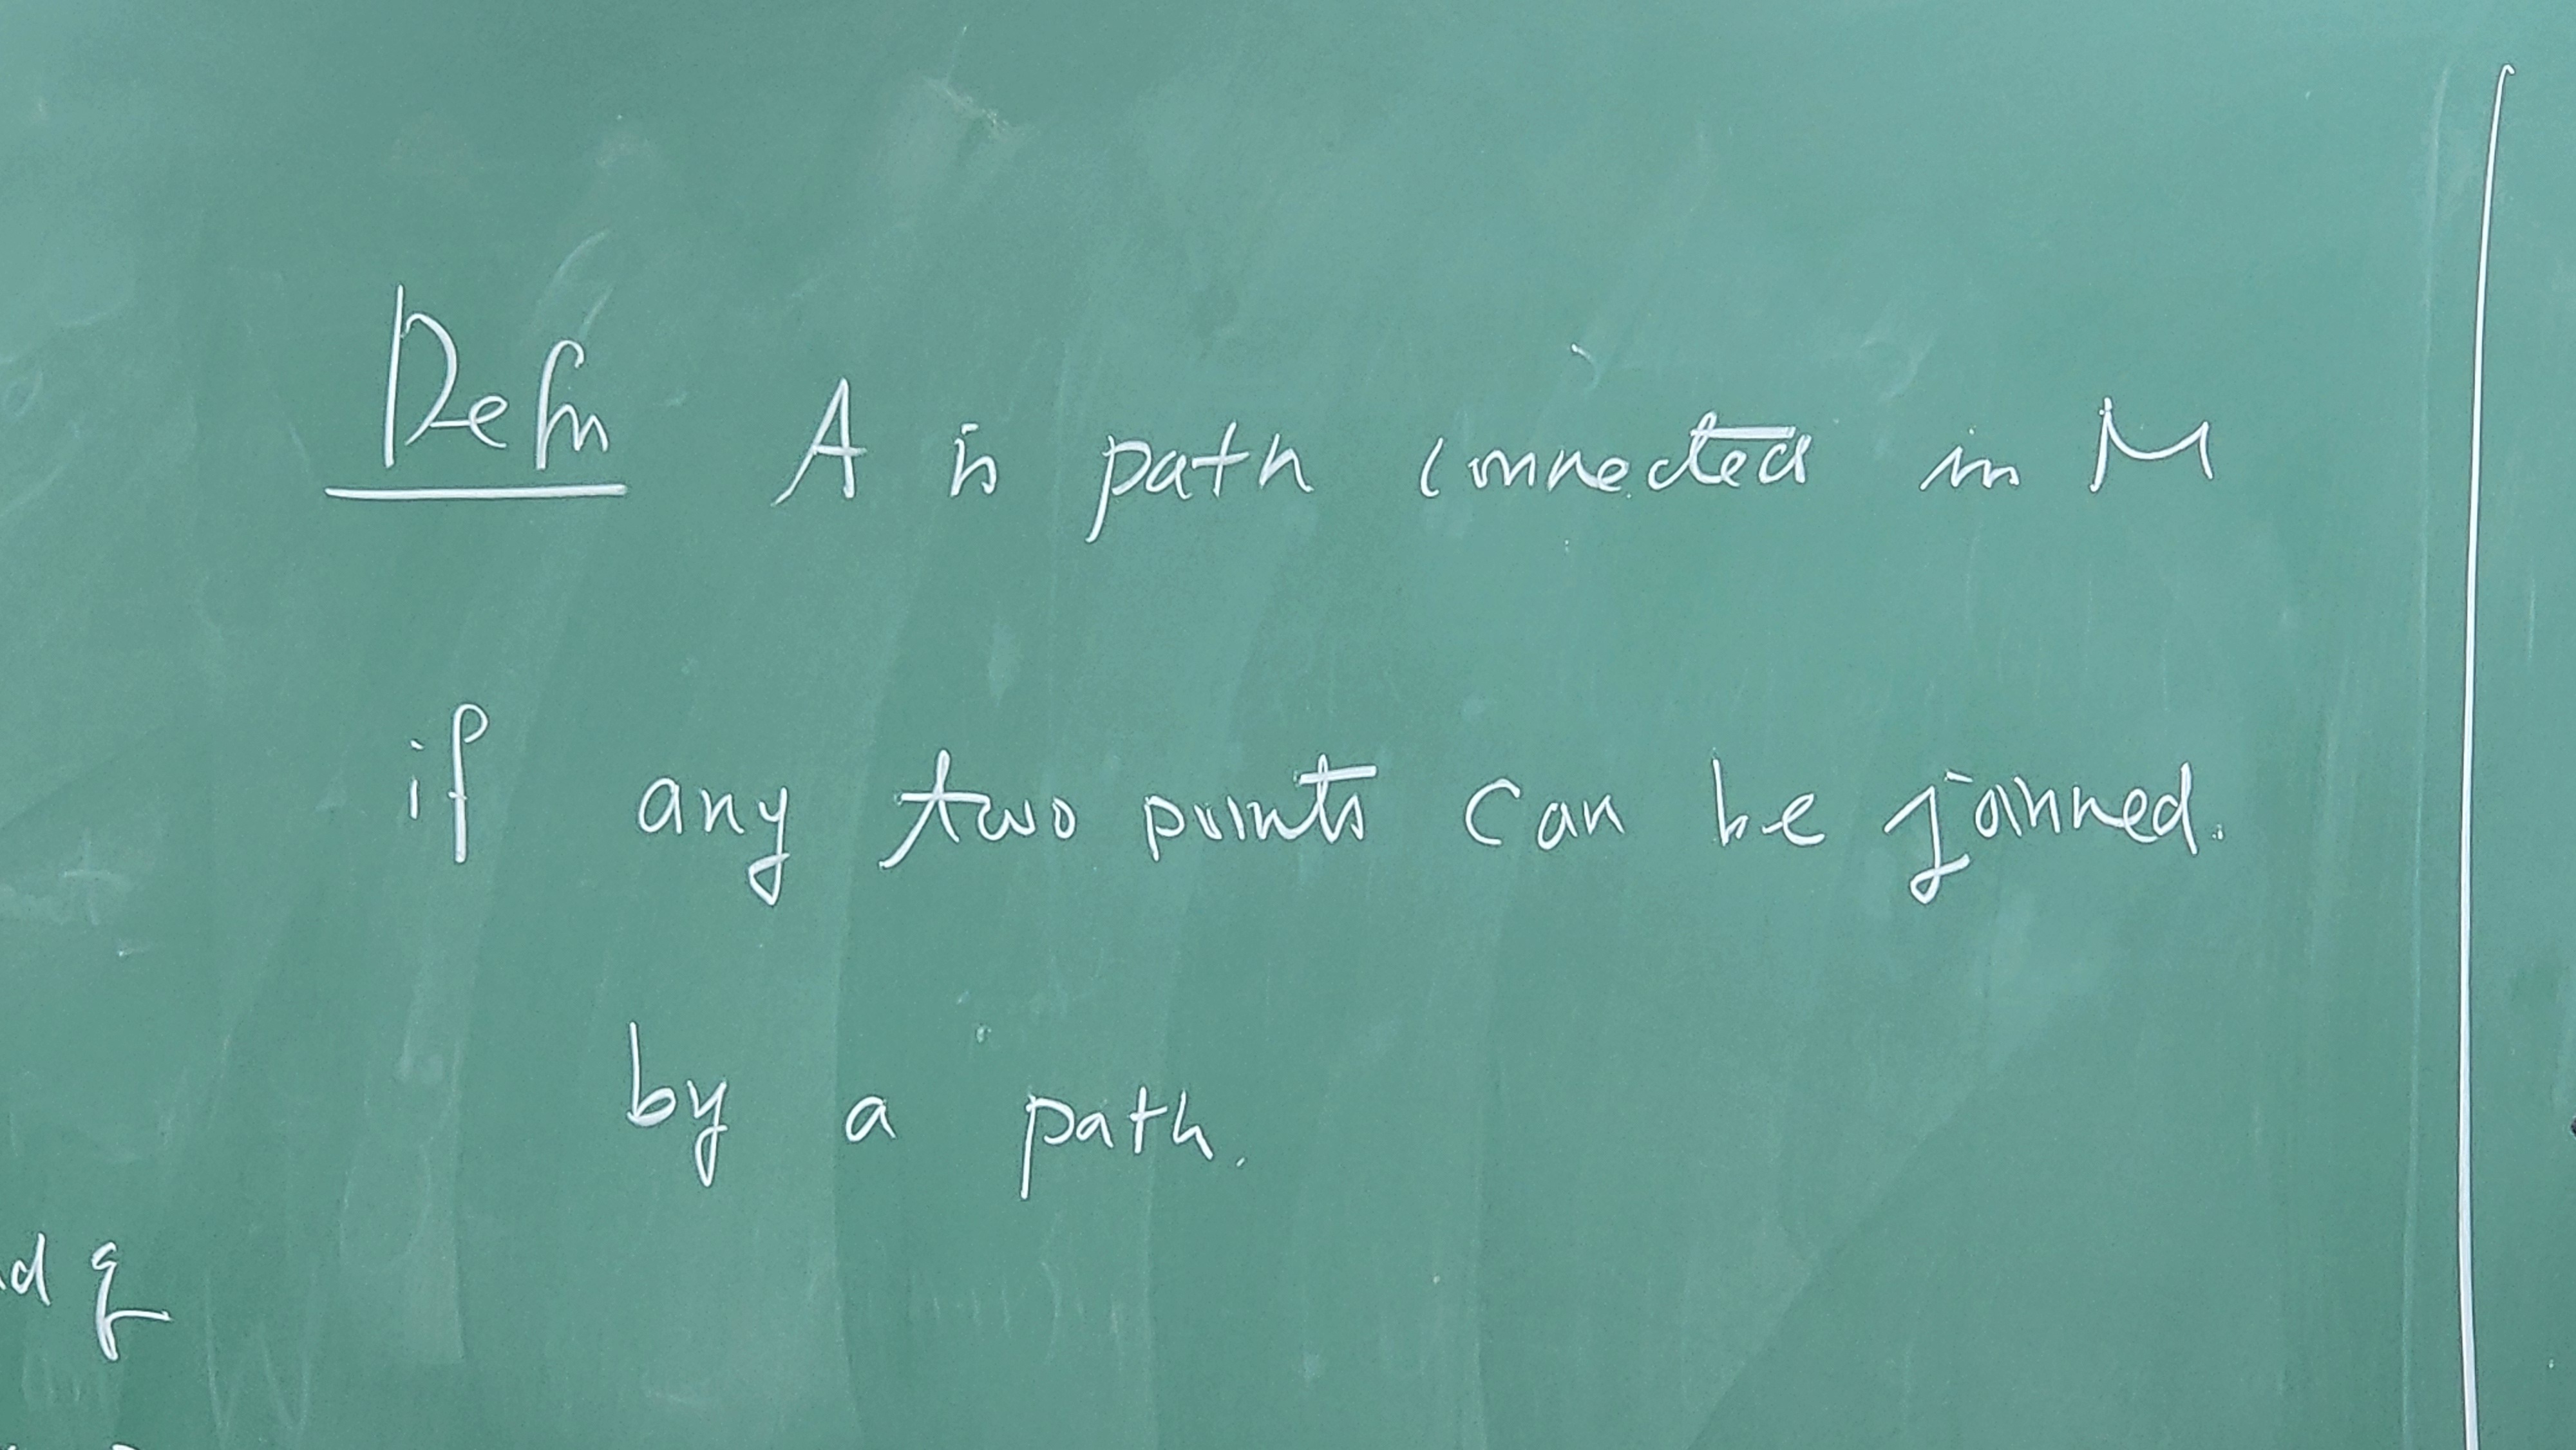 Defn A is path connected in M
if any two points can be joinned.
by a path.
d q